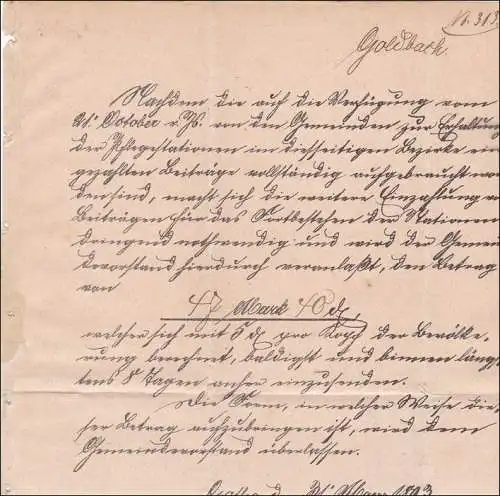 N. 313.
Goldbach.
Nachdem die auf die Verfügung vom
21. October v. Js. von den Gemeinden zur Erhaltung
der Pflegestationen im diesseitigen Bezirke ein-
gezahlten Beiträge vollständig aufgebraucht wor-
den sind, macht sich die weitere Einzahlung v
Beiträgen für das Fortbestehen der Stationen
dringend nothwendig und wird der Gemein
devorstand hierdurch veranlaßt, den Betrag
von
47 Mark 40 d,
welcher sich mit 5 d pro Kopf der Bevölke-
rung berechnet, baldigst und binnen längs-
tens 8 Tagen anher einzusenden.
Die Form, in welcher Weise die-
ser Betrag aufzubringen ist, wird dem
Gemeindevorstand überlassen.
Gotha d. 21. 1893